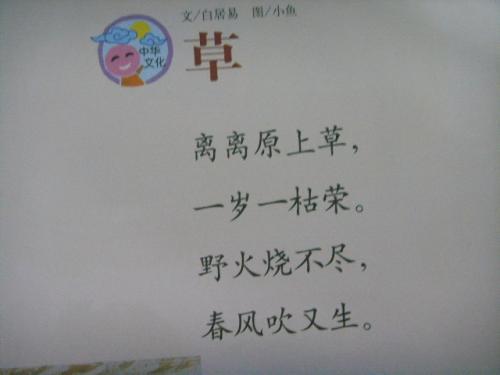 文/白居易 图/小鱼
中华
文化
草
离离原上草，
一岁一枯荣。
野火烧不尽，
春风吹又生。